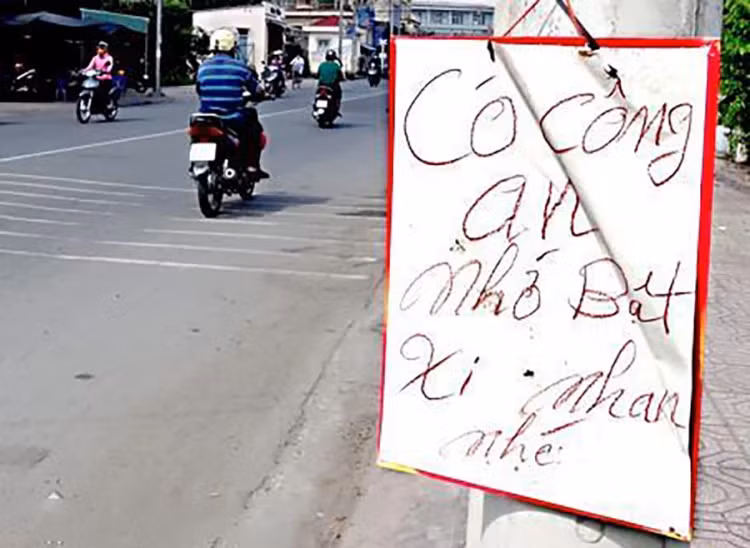 Có công
an
nhớ Bật
xi nhan
nhé